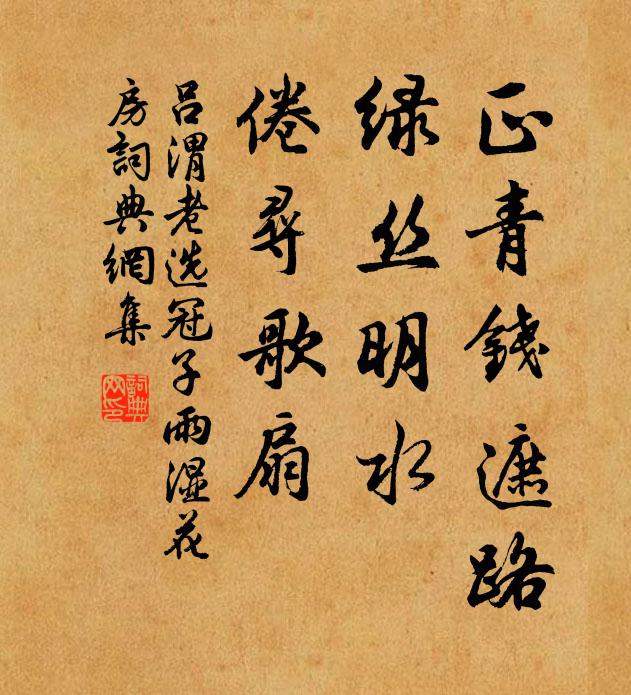 正青錢遮路
绿丝明水
倦尋歌扇
吕渭老选冠子雨湿花
房詞典網集
詞典网印